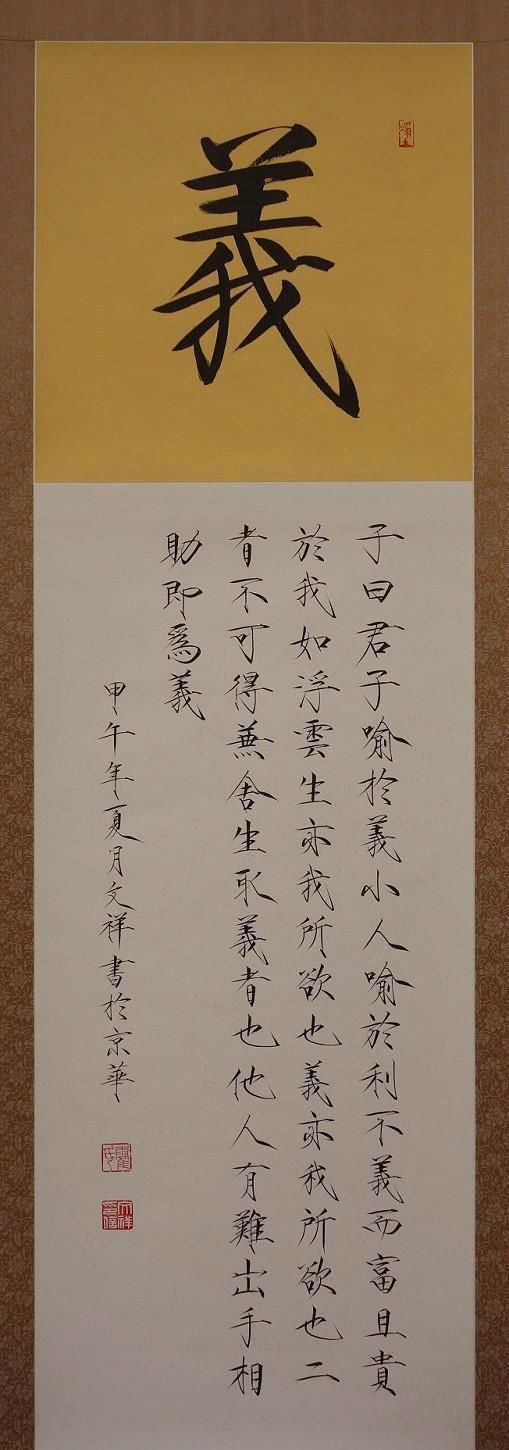 義
子曰君子喻於義小人喻於利不義而富且貴
於我如浮雲生亦我所欲也義亦我所欲也二
者不可得兼舍生取義者也他人有難出手相
助即為義
甲午年夏月文祥書於京華